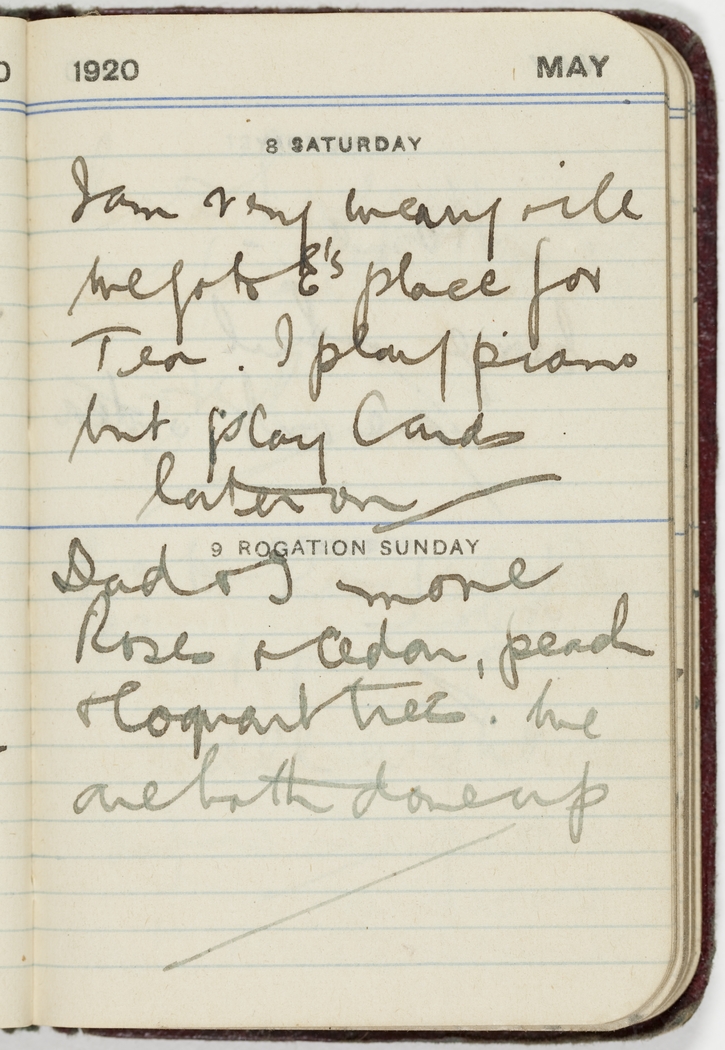 1920 MAY
8 SATURDAY
I am very weary & ill
we go to E's place for
Tea. I play piano
but play Cards
later on
9 ROGATION SUNDAY
Dad & I move
Roses & Cedar, peach
& loquart trees. We
are both done up